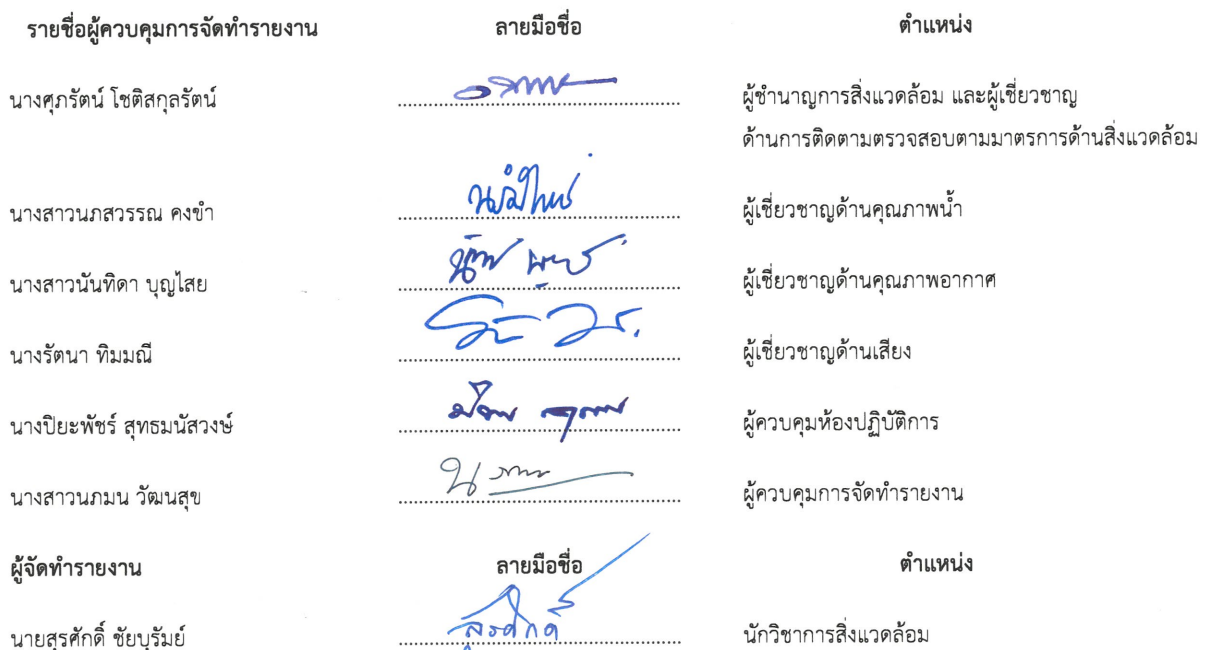 รายชื่อผู้ควบคุมการจัดทำรายงาน ลายมือชื่อ ตำแหน่ง
นางศุภรัตน์ โชติสกุลรัตน์ ผู้ชำนาญการสิ่งแวดล้อม และผู้เชี่ยวชาญ
ด้านการติดตามตรวจสอบตามมาตรการด้านสิ่งแวดล้อม
นางสาวนภสวรรณ คงขำ ผู้เชี่ยวชาญด้านคุณภาพน้ำ
นางสาวนันทิดา บุญไสย ผู้เชี่ยวชาญด้านคุณภาพอากาศ
นางรัตนา ทิมมณี ผู้เชี่ยวชาญด้านเสียง
นางปิยะพัชร์ สุทธมนัสวงษ์ ผู้ควบคุมห้องปฏิบัติการ
นางสาวนภมน วัฒนสุข ผู้ควบคุมการจัดทำรายงาน
ผู้จัดทำรายงาน ลายมือชื่อ ตำแหน่ง
นายสุรศักดิ์ ชัยบุรัมย์ สุรศักดิ์ นักวิชาการสิ่งแวดล้อม